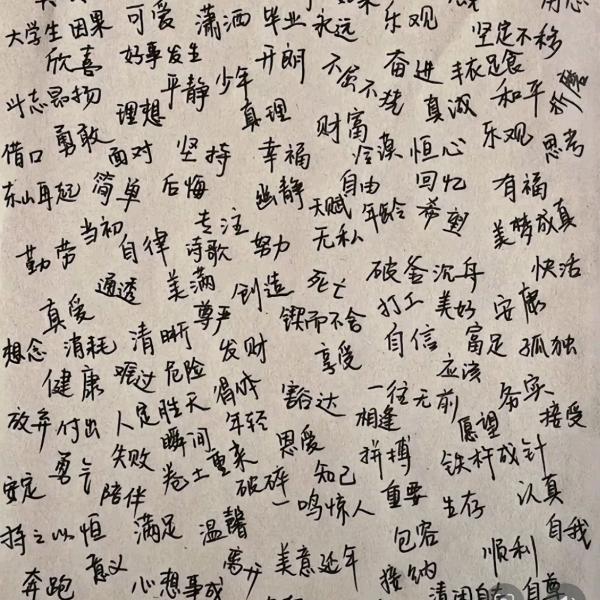 大学生 因果 可爱 潇洒 毕业 永远 乐观 坚定不移
欣喜 好事发生 开朗 不屈不挠 奋进 丰衣足食
斗志昂扬 理想 平静 少年 真理 财富 真诚 和平 折磨
借口 勇敢 面对 坚持 幸福 冷漠 恒心 乐观 思考
东山再起 简单 后悔 幽静 自由 回忆 有福
当初 专注 天赋 年龄 希望 美梦成真
勤劳 自律 诗歌 努力 无私
通透 美满 创造 死亡 破釜沉舟 快活
真爱 尊严 锲而不舍 打工 美好 安康
想念 消耗 清晰 发财 享受 自信 富足 孤独
健康 难过 危险 得体 豁达 一往无前 应该 务实
放弃 付出 人定胜天 年轻 相逢 愿望 接受
安定 勇气 失败 瞬间 卷土重来 恩爱 拼搏 铁杵成针
陪伴 破碎 知己 一鸣惊人 重要 生存 认真
持之以恒 满足 温馨 包容 自我
奔跑 意义 离开 美意延年 接纳 顺利
心想事成 清闲自在 自尊